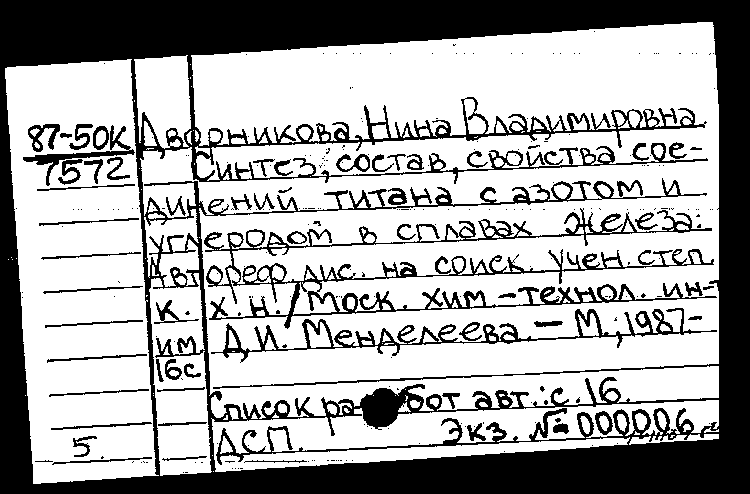 87-50К Дворникова, Нина Владимировна.
7572 Синтез, состав, свойства сое-
динений титана с азотом и
углеродом в сплавах железа:
Автореф. дис. на соиск. учен. степ.
к. х. н. / Моск. хим.-технол. ин-т
им. Д.И. Менделеева. — М., 1987.-
16с
Список работ авт.: с. 16.
5. ДСП. Экз. № 000006